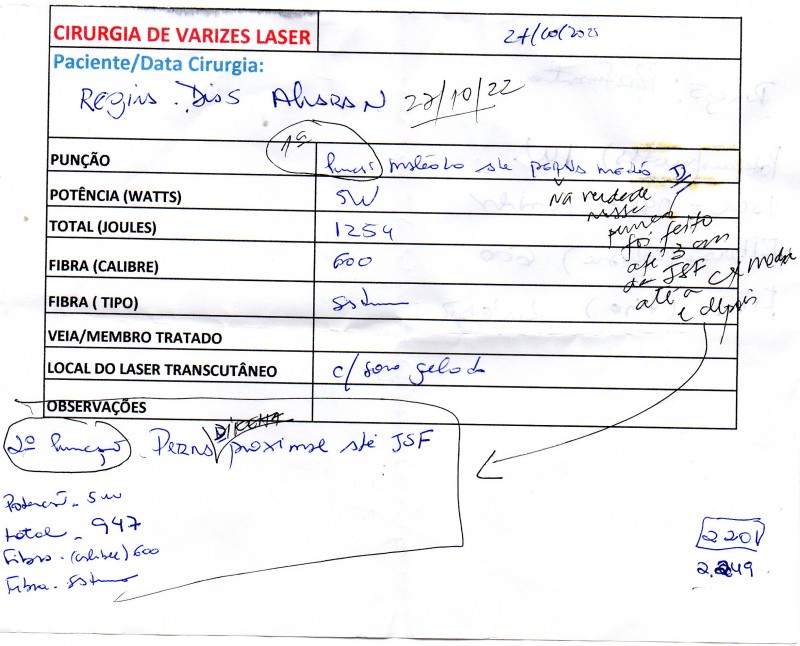 CIRURGIA DE VARIZES LASER
Paciente/Data Cirurgia:
Regina Dias 27/10/22
1ª
PUNÇÃO até perna media D
POTÊNCIA (WATTS) 5W
TOTAL (JOULES) 1254
FIBRA (CALIBRE) 600
FIBRA ( TIPO)
VEIA/MEMBRO TRATADO
LOCAL DO LASER TRANSCUTÂNEO c/ soro gelado
OBSERVAÇÕES
Na verdade
nessa
foi feito
até 3 cm
da JSF
até a cx media
e depois
2º Punção Perna DIREITA proximal até JSF
Potencia - 5 w
total - 947
Fibra - (calibre) 600
Fibra -
2201